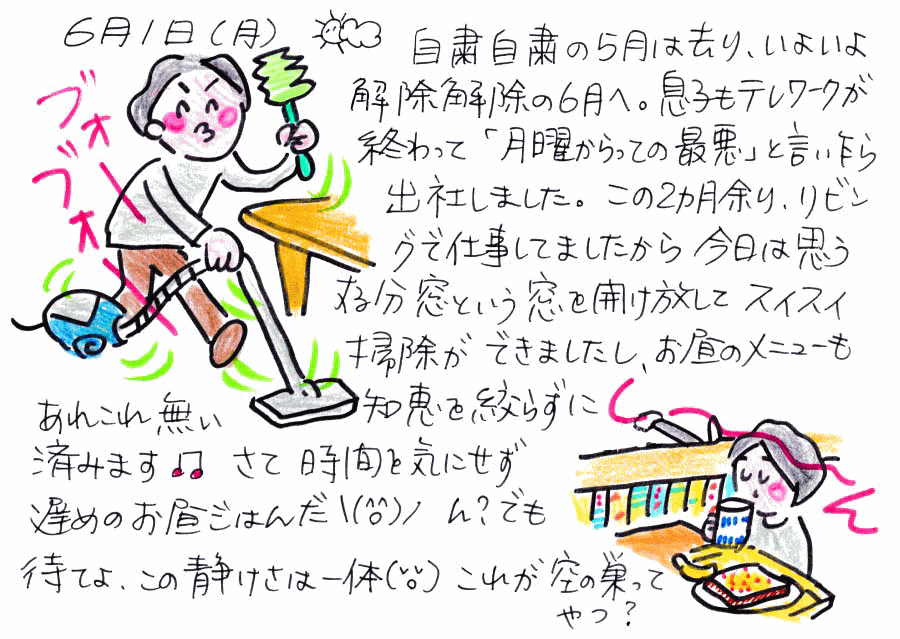 6月1日(月)
自粛自粛の5月は去り、いよいよ
解除解除の6月へ。息子もテレワークが
終わって「月曜からっての最悪」と言い乍ら
出社しました。この2カ月余り、リビン
グで仕事してましたから今日は思う
存分窓という窓を開け放してスイスイ
掃除ができましたし、お昼のメニューも
あれこれ無い知恵を絞らずに
済みます♫ さて時間を気にせず
遅めのお昼ごはんだ\(^o^)/ ん?でも
待てよ、この静けさは一体(°o°) これが空の巣って
やつ?
ブォー
ブォ